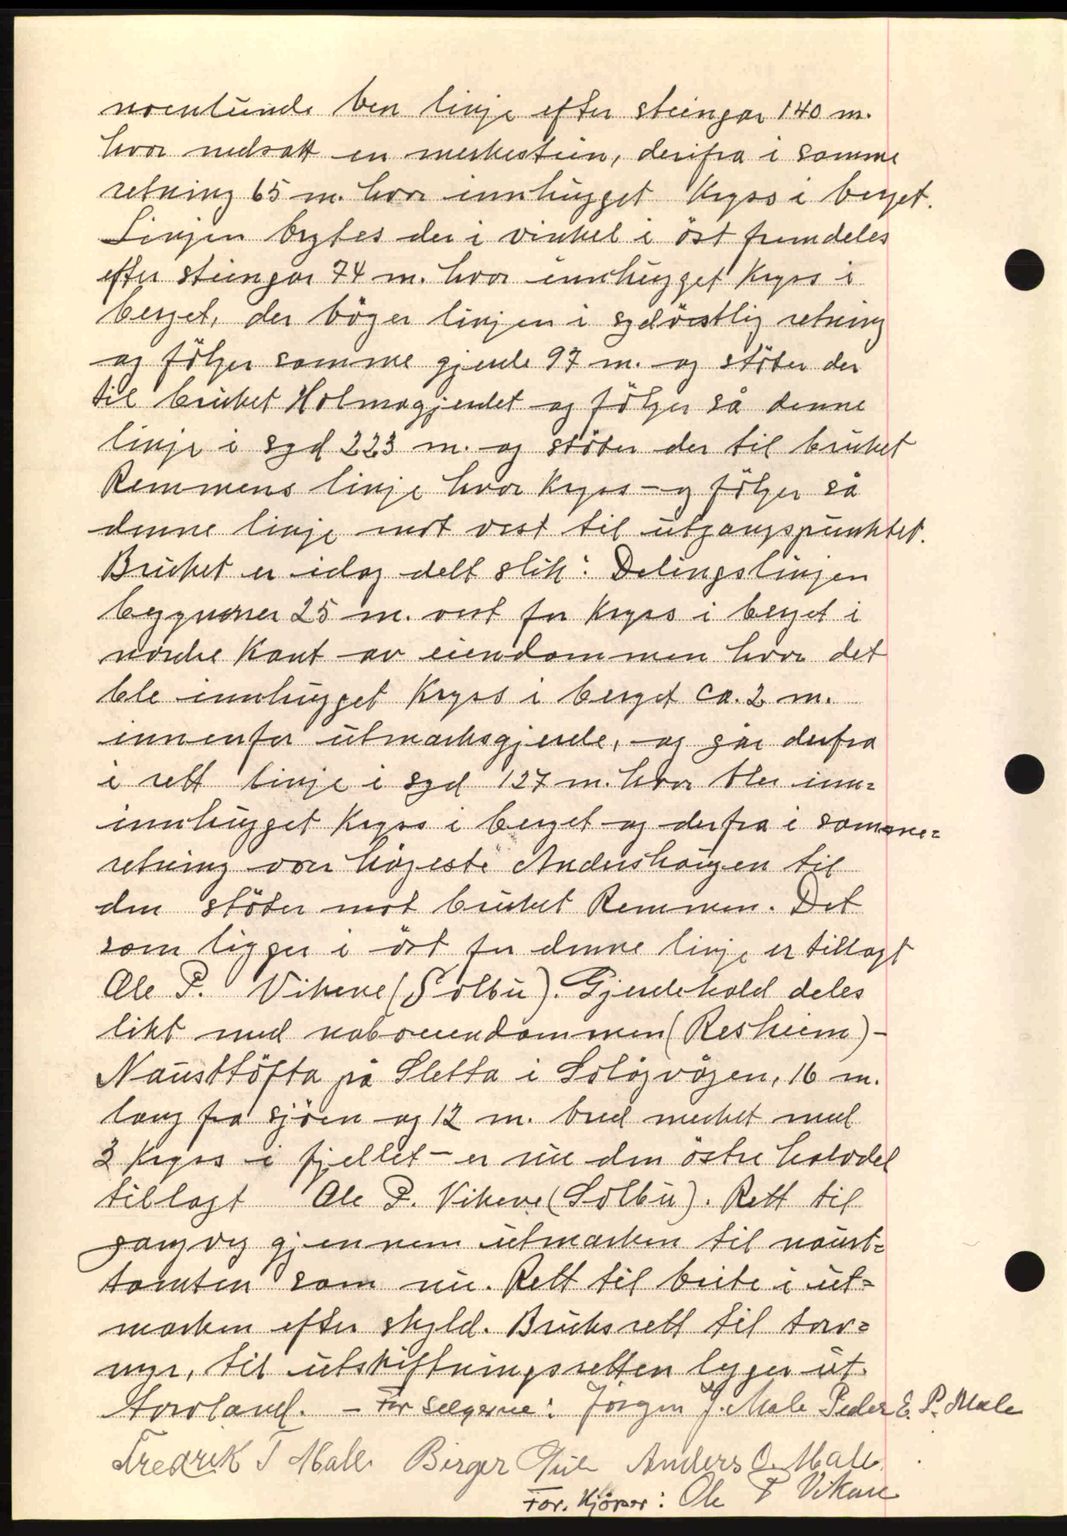 noenlunde ben linje efter steingar 140 m.
hvor nedsatt en merkestein, derifra i samme
retning 65 m. hvor innhugget Kryss i berget.
Linjen brytes der i vinkel i öst fremdeles
efter steingar 74 m. hvor innhugget Kryss i
berget, der böger linjen i sydöstlig retning
og fölger samme gjerde 97 m. og stöter der
til bruket Holmagjerdet og fölger så denne
linje i syd 223 m. og stöter der til bruket
Remmens linje hvor Kryss - og fölger så
denne linje mot vest til utgangspunktet.
Bruket er idag delt slik: Delingslinjen
begynner 25 m. vest for Kryss i berget i
nordre Kant av eiendommen hvor det
ble innhugget Kryss i berget ca. 2 m.
innenfor utmarksgjerde, og går derfra
i rett linje i syd 127 m. hvor bler inn=
innhugget Kryss i berget og derfra i samme=
retning over högeste Andershaugen til
den stöter mot bruket Remmen. Det
som ligger i öst for denne linje er tillagt
Ole P. Vikene (Solbu). Gjerdehold deles
likt med naboeiendommen (Resheim) -
Nausttöfta på Sletta i Solögvågen, 16 m.
lang fra sjöen og 12 m. bred merket med
3 Kryss i fjellet - er nu den östre halvdel
tillagt Ole P. Vikene (Solbu). Rett til
gangveg gjennem utmarken til naust=
tomten som nu. Rett til beite i ut=
marken efter skyld. Bruksrett til torv=
myr, til utskiftningsretten lyger ut
torvland. - For selgerne: Jörgen J. Male Peder E. P. Male
Fredrik T Male Birger Anders O. Male
For. Kjöper: Ole P Vikane